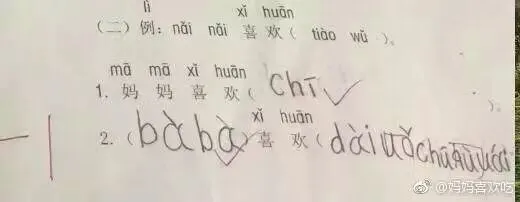 lì xǐ huān
(二) 例: nǎi nǎi 喜 欢 ( tiào wǔ )。
mā mā xǐ huān
1. 妈 妈 喜 欢 ( chī )。
xǐ huān
2. ( bà bà ) 喜 欢 ( dài wǒ chū qù
@妈妈喜欢吃